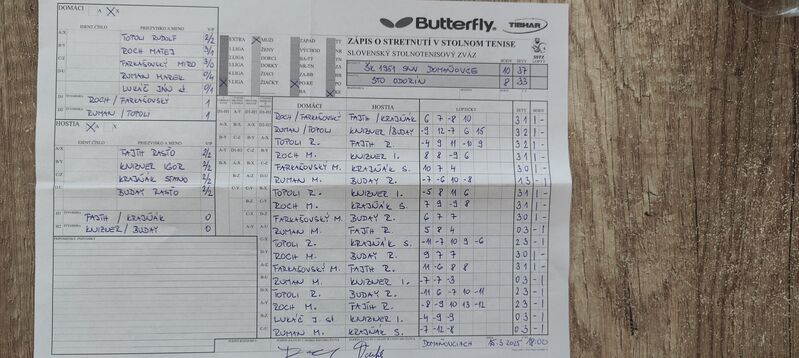 Butterfly
TIBHAR
ZÁPIS O STRETNUTÍ V STOLNOM TENISE
SLOVENSKÝ STOLNOTENISOVÝ ZVÄZ
ŠK 1951 SNV DOMAŇOVCE 10 37
STO ODORÍN 8 33
DOMÁCI A X
IDENT. ČÍSLO PRIEZVISKO A MENO
TOPOLI RUDOLF 2/2
ROCH MATEJ 3/1
FARKAŠOVSKÝ MIRO 3/0
RUMAN MAREK 0/4
LUKÁČ JÁN st. 0/1
ROCH / FARKAŠOVSKÝ 1
RUMAN / TOPOLI 1
HOSTIA A X
IDENT. ČÍSLO PRIEZVISKO A MENO
FAJTH RASŤO 2/2
KNIZNER IGOR 2/2
KRAJŇÁK STANO 2/2
BUDAY RASŤO 2/2
FAJTH / KRAJŇÁK 0
KNIZNER / BUDAY 0
EXTRA MUŽI ZÁPAD
I. LIGA ŽENY VÝCHOD
DORCI BA-TT
DORKY NR-TN
ŽIACI ZA-BB
ŽIAČKY PO-KE
DOMÁCI HOSTIA LOPTIČKY
ROCH / FARKAŠOVSKÝ FAJTH / KRAJŇÁK 6 7 -8 10 3 1 1 -
RUMAN / TOPOLI KNIZNER / BUDAY -9 12 -7 6 15 3 2 1 -
TOPOLI R. FAJTH R. -4 9 11 -10 9 3 2 1 -
ROCH M. KNIZNER I. 8 8 -9 6 3 1 1 -
FARKAŠOVSKÝ M. KRAJŇÁK S. 10 7 4 3 0 1 -
RUMAN M. BUDAY R. -7 -6 10 -8 1 3 - 1
TOPOLI R. KNIZNER I. -5 8 11 6 3 1 1 -
ROCH M. KRAJŇÁK S. 7 9 -9 8 3 1 1 -
FARKAŠOVSKÝ M. BUDAY R. 6 7 7 3 0 1 -
RUMAN M. FAJTH R. 5 8 4 0 3 - 1
TOPOLI R. KRAJŇÁK S. -11 -7 10 9 -6 2 3 - 1
ROCH M. BUDAY R. 9 7 7 3 0 1 -
FARKAŠOVSKÝ M. FAJTH R. 11 -6 8 8 3 1 1 -
RUMAN M. KNIZNER I. -7 -7 -3 0 3 - 1
TOPOLI R. BUDAY R. -11 6 -7 10 -11 2 3 - 1
ROCH M. FAJTH R. -8 -9 10 13 -12 2 3 - 1
LUKÁČ J. st KNIZNER I. -4 -9 -9 0 3 - 1
RUMAN M. KRAJŇÁK S. -7 -12 -8 0 3 - 1
DOMAŇOVCIACH 15.3.2025 18:00